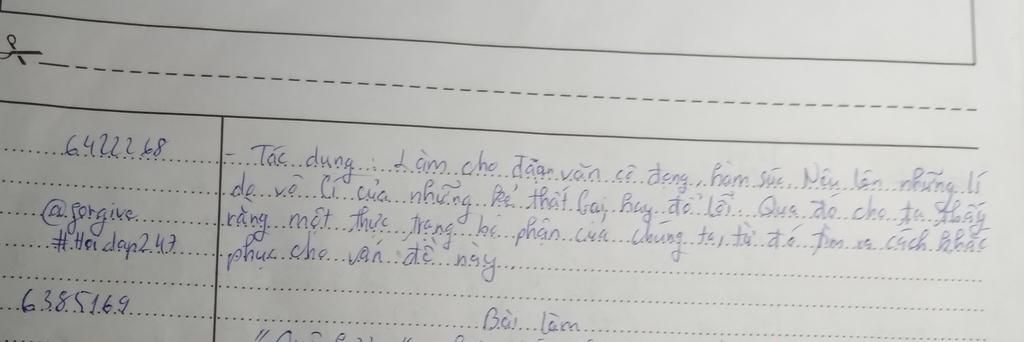 6422268
- Tác dung: Làm cho đoạn văn cô đọng, hàm súc. Nêu lên những lí
do vô lí của những kẻ thất bại, hay đổ lỗi. Qua đó cho ta thấy
@forgive
rằng một thực trạng bộ phận của chúng ta, từ đó tìm ra cách khắc
#Hoidap247
phục cho vấn đề này.
6385169
Bài làm